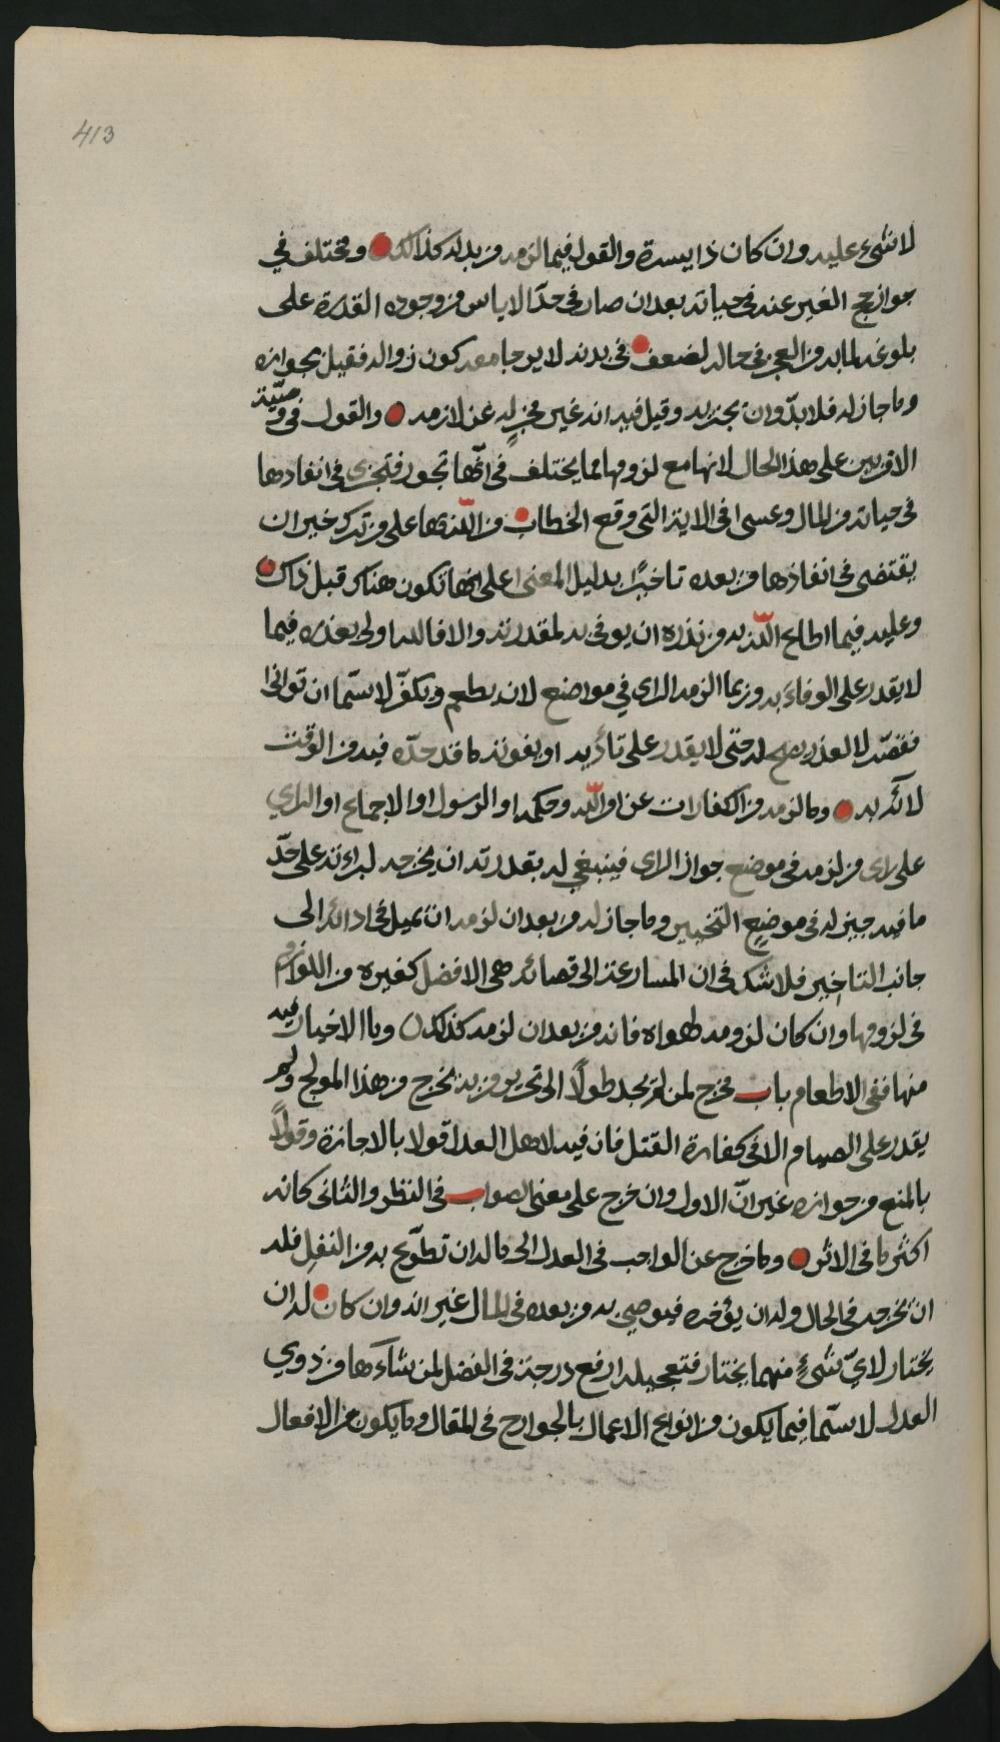 413
لا شيء عليه وان كان ذا يسرة والقول فيما لزمه من بدله كذالك ومختلف في
جواز حج الغير عنه في حياته بعد ان صار في حدّ الاياس من وجوده القدرة على
بلوغه لما به من العجز في حاله لضعف في بدنه لا يرجا معه كون زواله فقيل بجوازه
وما جاز له فلا بدّ وان يجزيه وقيل فيه انه غير مجزٍ له عن لازمه والقول في وصيّة
الاقربين على هذا الحال لانها مع لزومها مما يختلف في انّها تجوز فتجزي في انفاذها
في حياته من المال وعسى في الاية التي وقع الخطاب من اللّه بها على من ترك خيرا ان
يقتضي في انفاذها من بعده تاخيرًا بدليل المعنى على انها تكون هناك قبل ذاك
وعليه فيما اطاع اللّه به من نذره ان يوفي به لمقدرته والا فالله اولى بعذره فيما
لا يقدر على الوفاء به وربما الزمه الراي في مواضع لان يطعم ويكفّر لا سيّما ان توانى
فقصّر لا لعذر يصح له حتى لا يقدر على تأديه او يفوته ما قد حدّه فيه من الوقت
لأدّائه به وما لزمه من الكفارات عن امر اللّه وحكمه او الرسول او الاجماع او الراي
على راى من لزمه في موضع جواز الراى فينبغي له بقدرته ان يخرجه لبراءته على حدّ
ما فيه جيز له في موضعٍ التخيير وما جاز له من بعد ان لزمه ان يميل في ادائه الى
جانب التاخير فلا شك في ان المسارعة الى قضائه هى الافضل كغيره من اللوازم
في لزومها وان كان لزومه لهواه فانه من بعد ان لزمه كذلك وما الاخيار فيه
منها ففى الاطعام باب مخرج لمن لم يجد طولًا الى تحرير من به يخرج من هذا المولج ولم
يقدر على الصيام الا فى كفارة القتل فان فيه لاهل العدل قولا بالاجازة وقولًا
بالمنع من جوازه غير انّ الاول وان خرج على معنى الصواب في النظر والثانى كانه
اكثر ما فى الاثر وما خرج عن الواجب فى العدل الى ما له ان تطوّع به من النفل فله
ان يخرجه في الحال وله ان يؤخره فيوصي به من بعده في المال غير انه وان كان له ان
يختار لايّ شيءٍ منهما يختار فتعجيله ارفع درجة في الفضل لمن شاءها من ذوي
العدل لا سيّما فيما يكون من انواع الاعمال بالجوارح في المقال وما يكون من الافعال